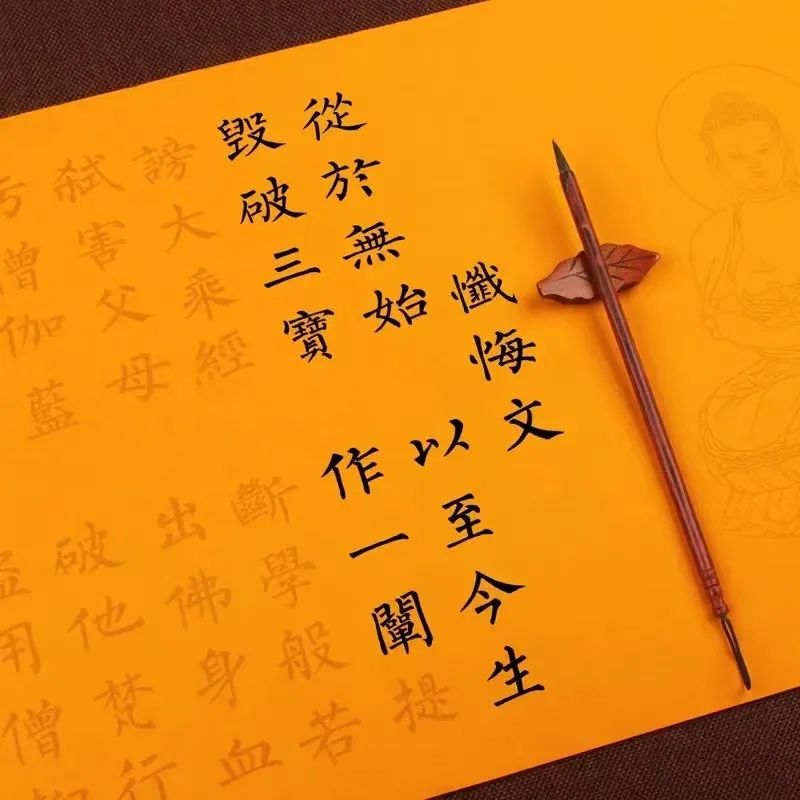 懺悔文
從於無始 以至今生
毀破三寶 作一闡提
謗大乘經 斷學般若
弒害父母 出佛身血
污僧伽藍 破他梵行
用僧